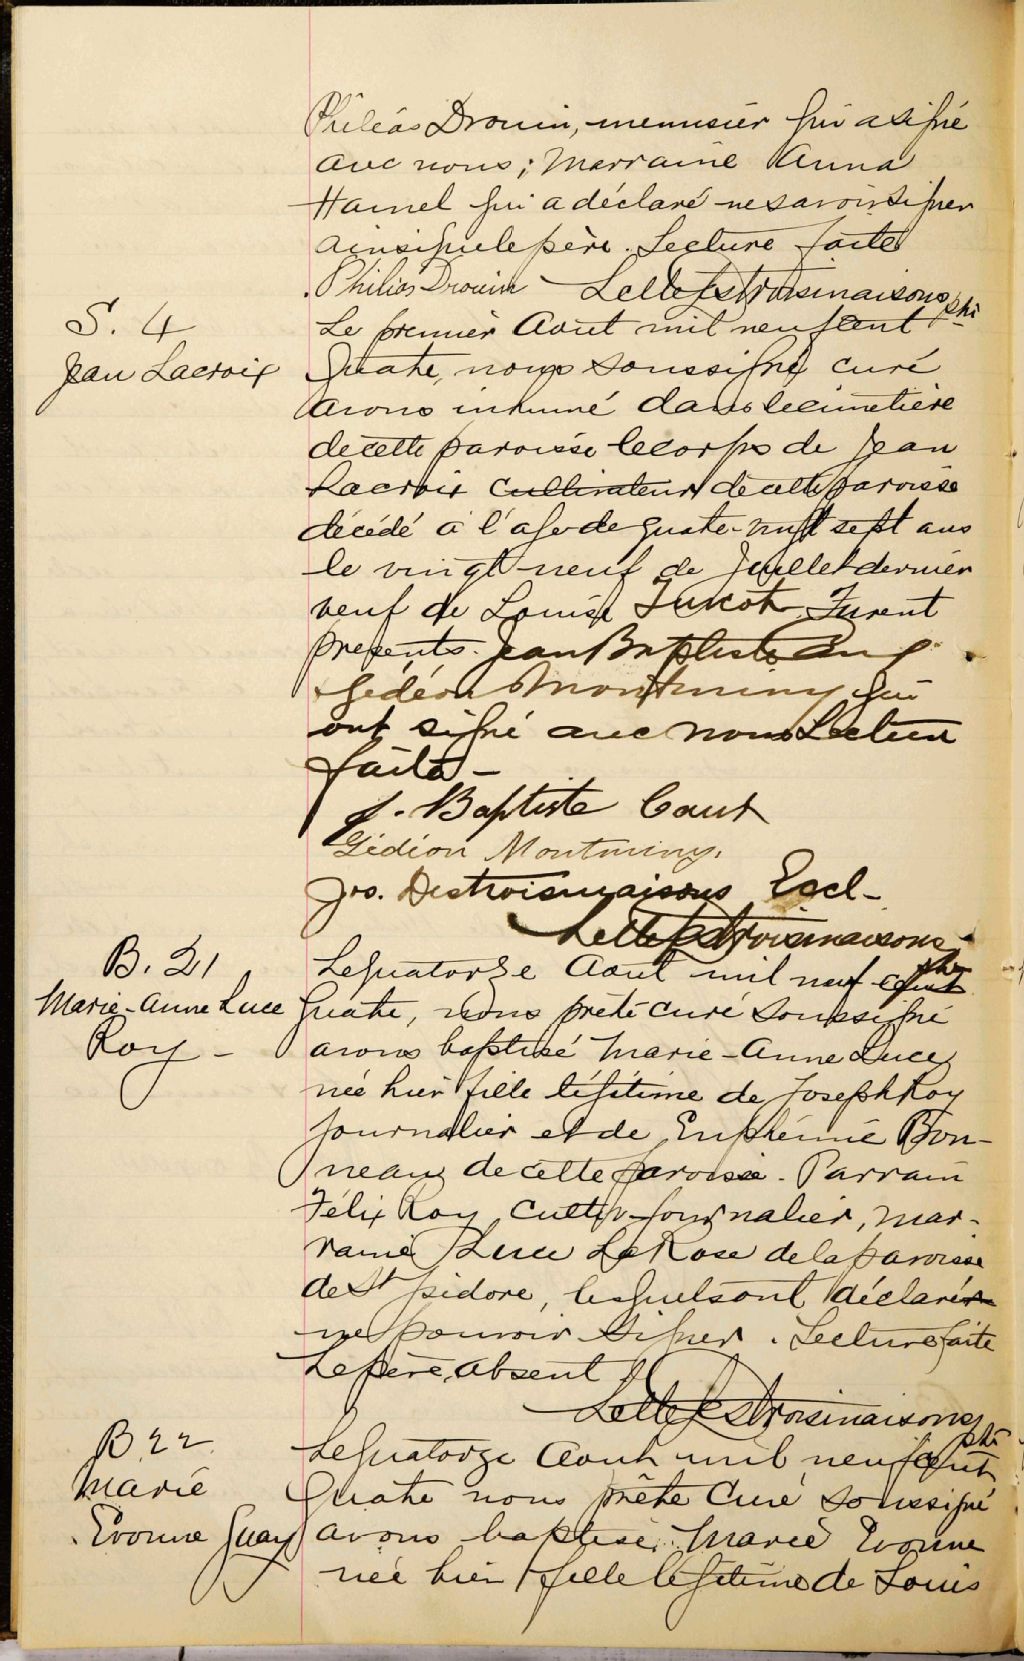 Philéas Drouin, menuisier qui a signé
avec nous; Marraine Anna
Hamel qui a déclaré ne savoir signer
ainsi que le père. Lecture faite
Philias Drouin Destroismaisons ptre
S. 4
Jean Lacroix
Le premier Aout mil neuf cent
quatre, nous soussigné curé
avons inhumé dans le cimetière
de cette paroisse le corps de Jean
Lacroix cultivateur de cette paroisse
décédé à l'age de quatre-vingt sept ans
le vingt-neuf de Juillet dernier
veuf de Louise Turcot. Furent
présents. Jean Baptiste
Gédéon Montminy qui
ont signé avec nous Lecture
faite -
J. Baptiste
Gédéon Montminy.
Jos. Destroismaisons Eccl-
Destroismaisons ptre
B. 21
Marie-Anne Luce
Roy -
Le quatorze Aout mil neuf cent
quatre, nous prêtre curé soussigné
avons baptisé Marie-Anne Luce
née hier fille légitime de Joseph Roy
journalier et de Euphémie Bon-
neau de cette paroisse. Parrain
Félix Roy journalier, mar-
raine Luce LaRose de la paroisse
de St Isidore, lesquels ont déclaré
ne pouvoir signer. Lecture faite
Le père, absent
Destroismaisons ptre
B 22
Marie
Evonne Guay
Le quatorze Aout mil neuf cent
quatre nous prêtre Curé soussigné
avons baptisé Marie Evonne
née hier fille légitime de Louis